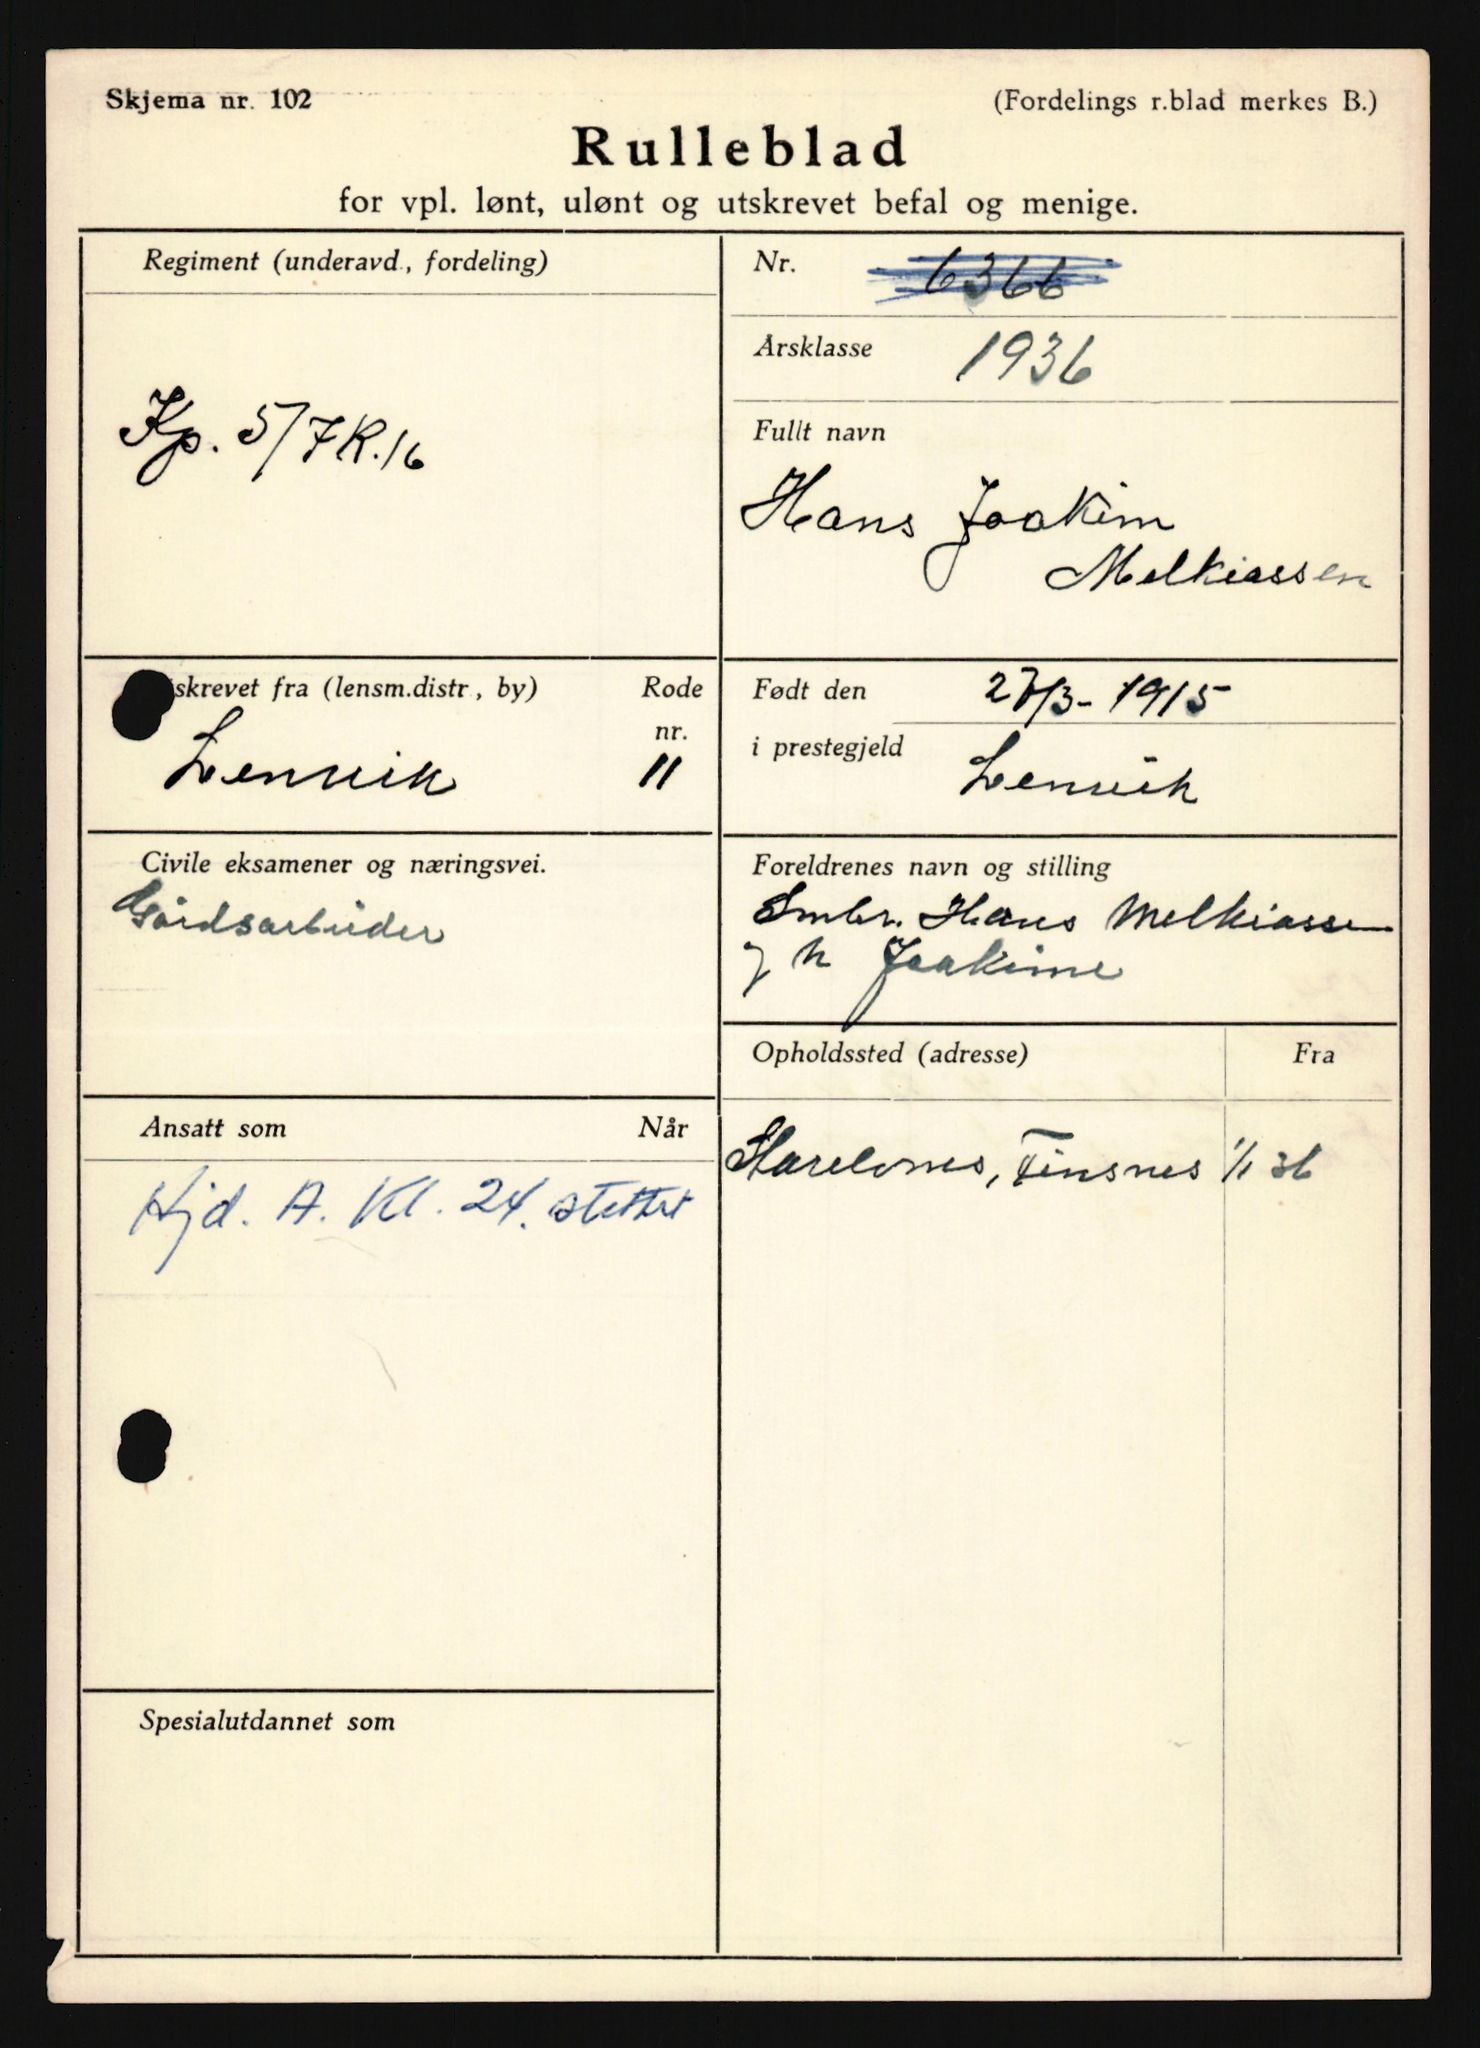 Skjema nr. 102
(Fordelings r.blad merkes B.)
Rulleblad
for vpl. lønt, ulønt og utskrevet befal og menige.
Regiment (underavd., fordeling)
Kp. 5/7 R. 16
skrevet fra (lensm.distr., by) Rode nr.
Lenvik 11
Civile eksamener og næringsvei.
Gårdsarbeider
Ansatt som Når
Hjd. A. Kl. 24.
Spesialutdannet som
Nr. 6366
Årsklasse 1936
Fullt navn
Hans Joakim
Melkiassen
Født den 27/3-1915
i prestegjeld Lenvik
Foreldrenes navn og stilling
Smbr. Hans Melkiassen
Joakime
Opholdssted (adresse) Fra
Finsnes 1/1 36